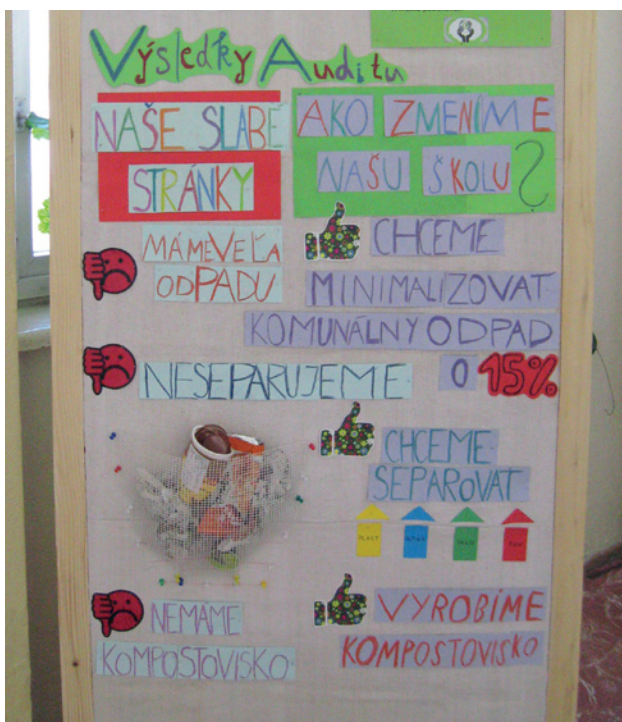 Výsledky Auditu
NAŠE SLABÉ
STRÁNKY
AKO ZMENÍME
NAŠU ŠKOLU?
MÁME VEĽA
ODPADU
CHCEME
MINIMALIZOVAT
KOMUNÁLNY ODPAD
O 15%
NESEPARUJEME
CHCEME
SEPAROVAT
PLAST
NEMÁME
KOMPOSTOVISKO
VYROBÍME
KOMPOSTOVISKO